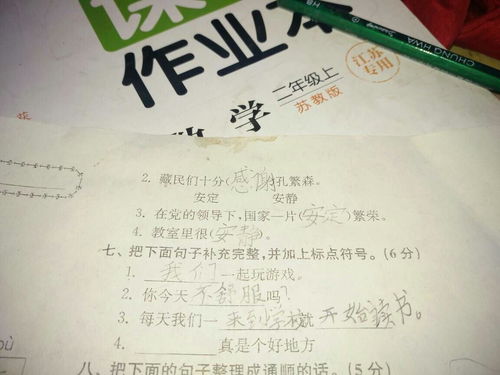 课
作业本
江苏
专用
二年级上
苏教版
数学
CHUNG HWA
2. 藏民们十分(感谢)孔繁森。
安定 安静
3. 在党的领导下,国家一片(安定)繁荣。
4. 教室里很(安静)。
七、把下面句子补充完整,并加上标点符号。(6分)
1. 我们一起玩游戏。
2. 你今天不舒服吗?
3. 每天我们一来到学校就开始读书。
4. ________真是个好地方
八、把下面的句子整理成通顺的话。(5分)